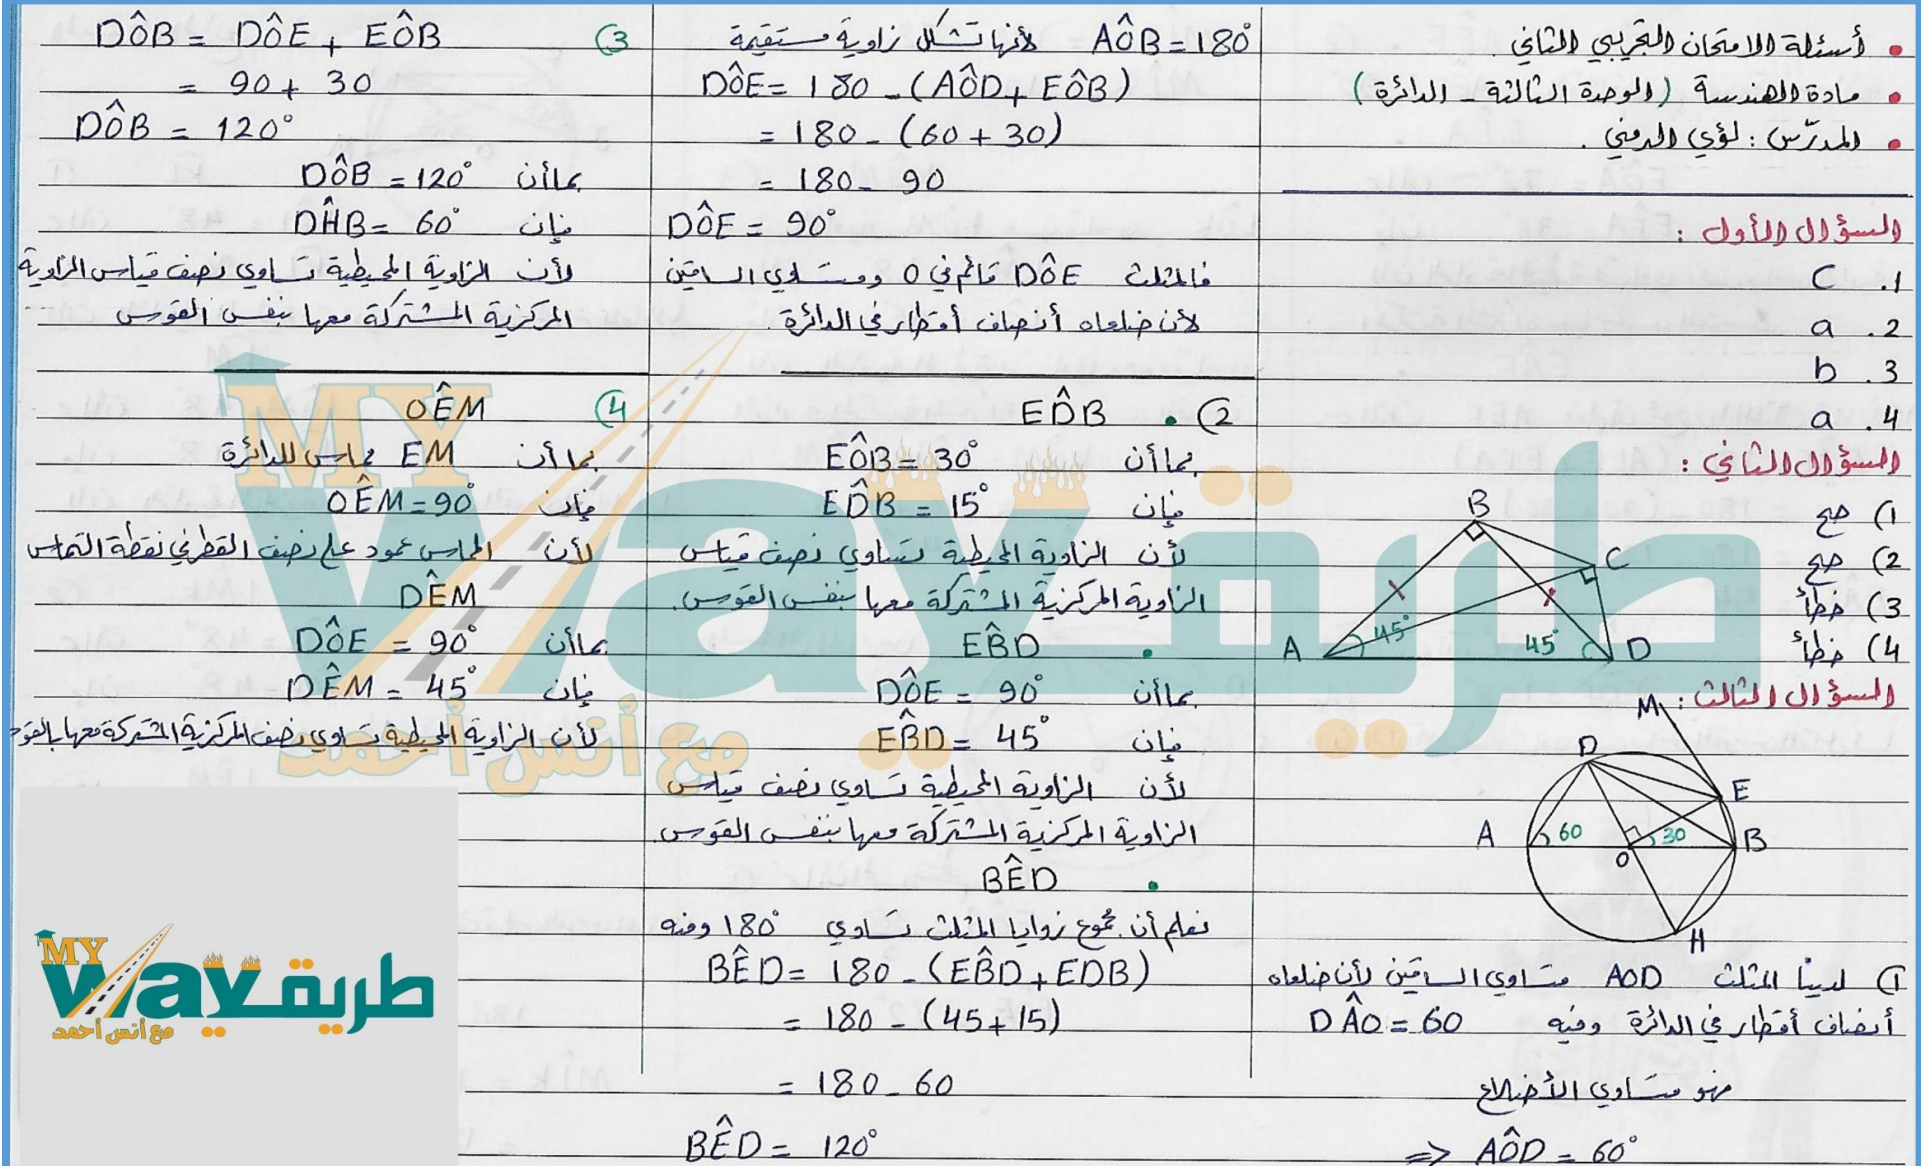 • أسئلة الامتحان التجريبي الثاني
• مادة الهندسة (الوحدة الثالثة - الدائرة)
• المدرّس : لؤي الدمني .
السؤال الأول :
1. C
2. a
3. b
4. a
السؤال الثاني :
1) صح
2) صح
3) خطأ
4) خطأ
B
C
A 45° 45° D
السؤال الثالث :
M
D
E
A 60 30 B
O
H
1) لدينا المثلث AOD متساوي الساقين لأن ضلعاه
أنصاف أقطار في الدائرة وفيه DÂO = 60
فهو متساوي الأضلاع
⇒ AÔD = 60°
AÔB = 180° لأنها تشكل زاوية مستقيمة
DÔE = 180 - (AÔD + EÔB)
= 180 - (60 + 30)
= 180 - 90
DÔE = 90°
فالمثلث DÔE قائم في O ومتساوي الساقين
لأن ضلعاه أنصاف أقطار في الدائرة .
2) • ED̂B
بما أن EÔB = 30°
فإن ED̂B = 15°
لأن الزاوية المحيطية تساوي نصف قياس
الزاوية المركزية المشتركة معها بنفس القوس.
• EB̂D
بما أن DÔE = 90°
فإن EB̂D = 45°
لأن الزاوية المحيطية تساوي نصف قياس
الزاوية المركزية المشتركة معها بنفس القوس.
• BÊD
نعلم أن مجموع زوايا المثلث تساوي 180° ومنه
BÊD = 180 - (EB̂D + EDB)
= 180 - (45 + 15)
= 180 - 60
BÊD = 120°
3) DÔB = DÔE + EÔB
= 90 + 30
DÔB = 120°
بما أن DÔB = 120°
فإن DĤB = 60°
لأن الزاوية المحيطية تساوي نصف قياس الزاوية
المركزية المشتركة معها بنفس القوس
4) OÊM
بما أن EM مماس للدائرة
فإن OÊM = 90°
لأن المماس عمود على نصف القطر في نقطة التماس
DÊM
بما أن DÔE = 90°
فإن DÊM = 45°
لأن الزاوية المحيطية تساوي نصف المركزية المشتركة معها بالقو
MY
Way طريق
مع أنس أحمد
MY
Way طريق
مع أنس أحمد